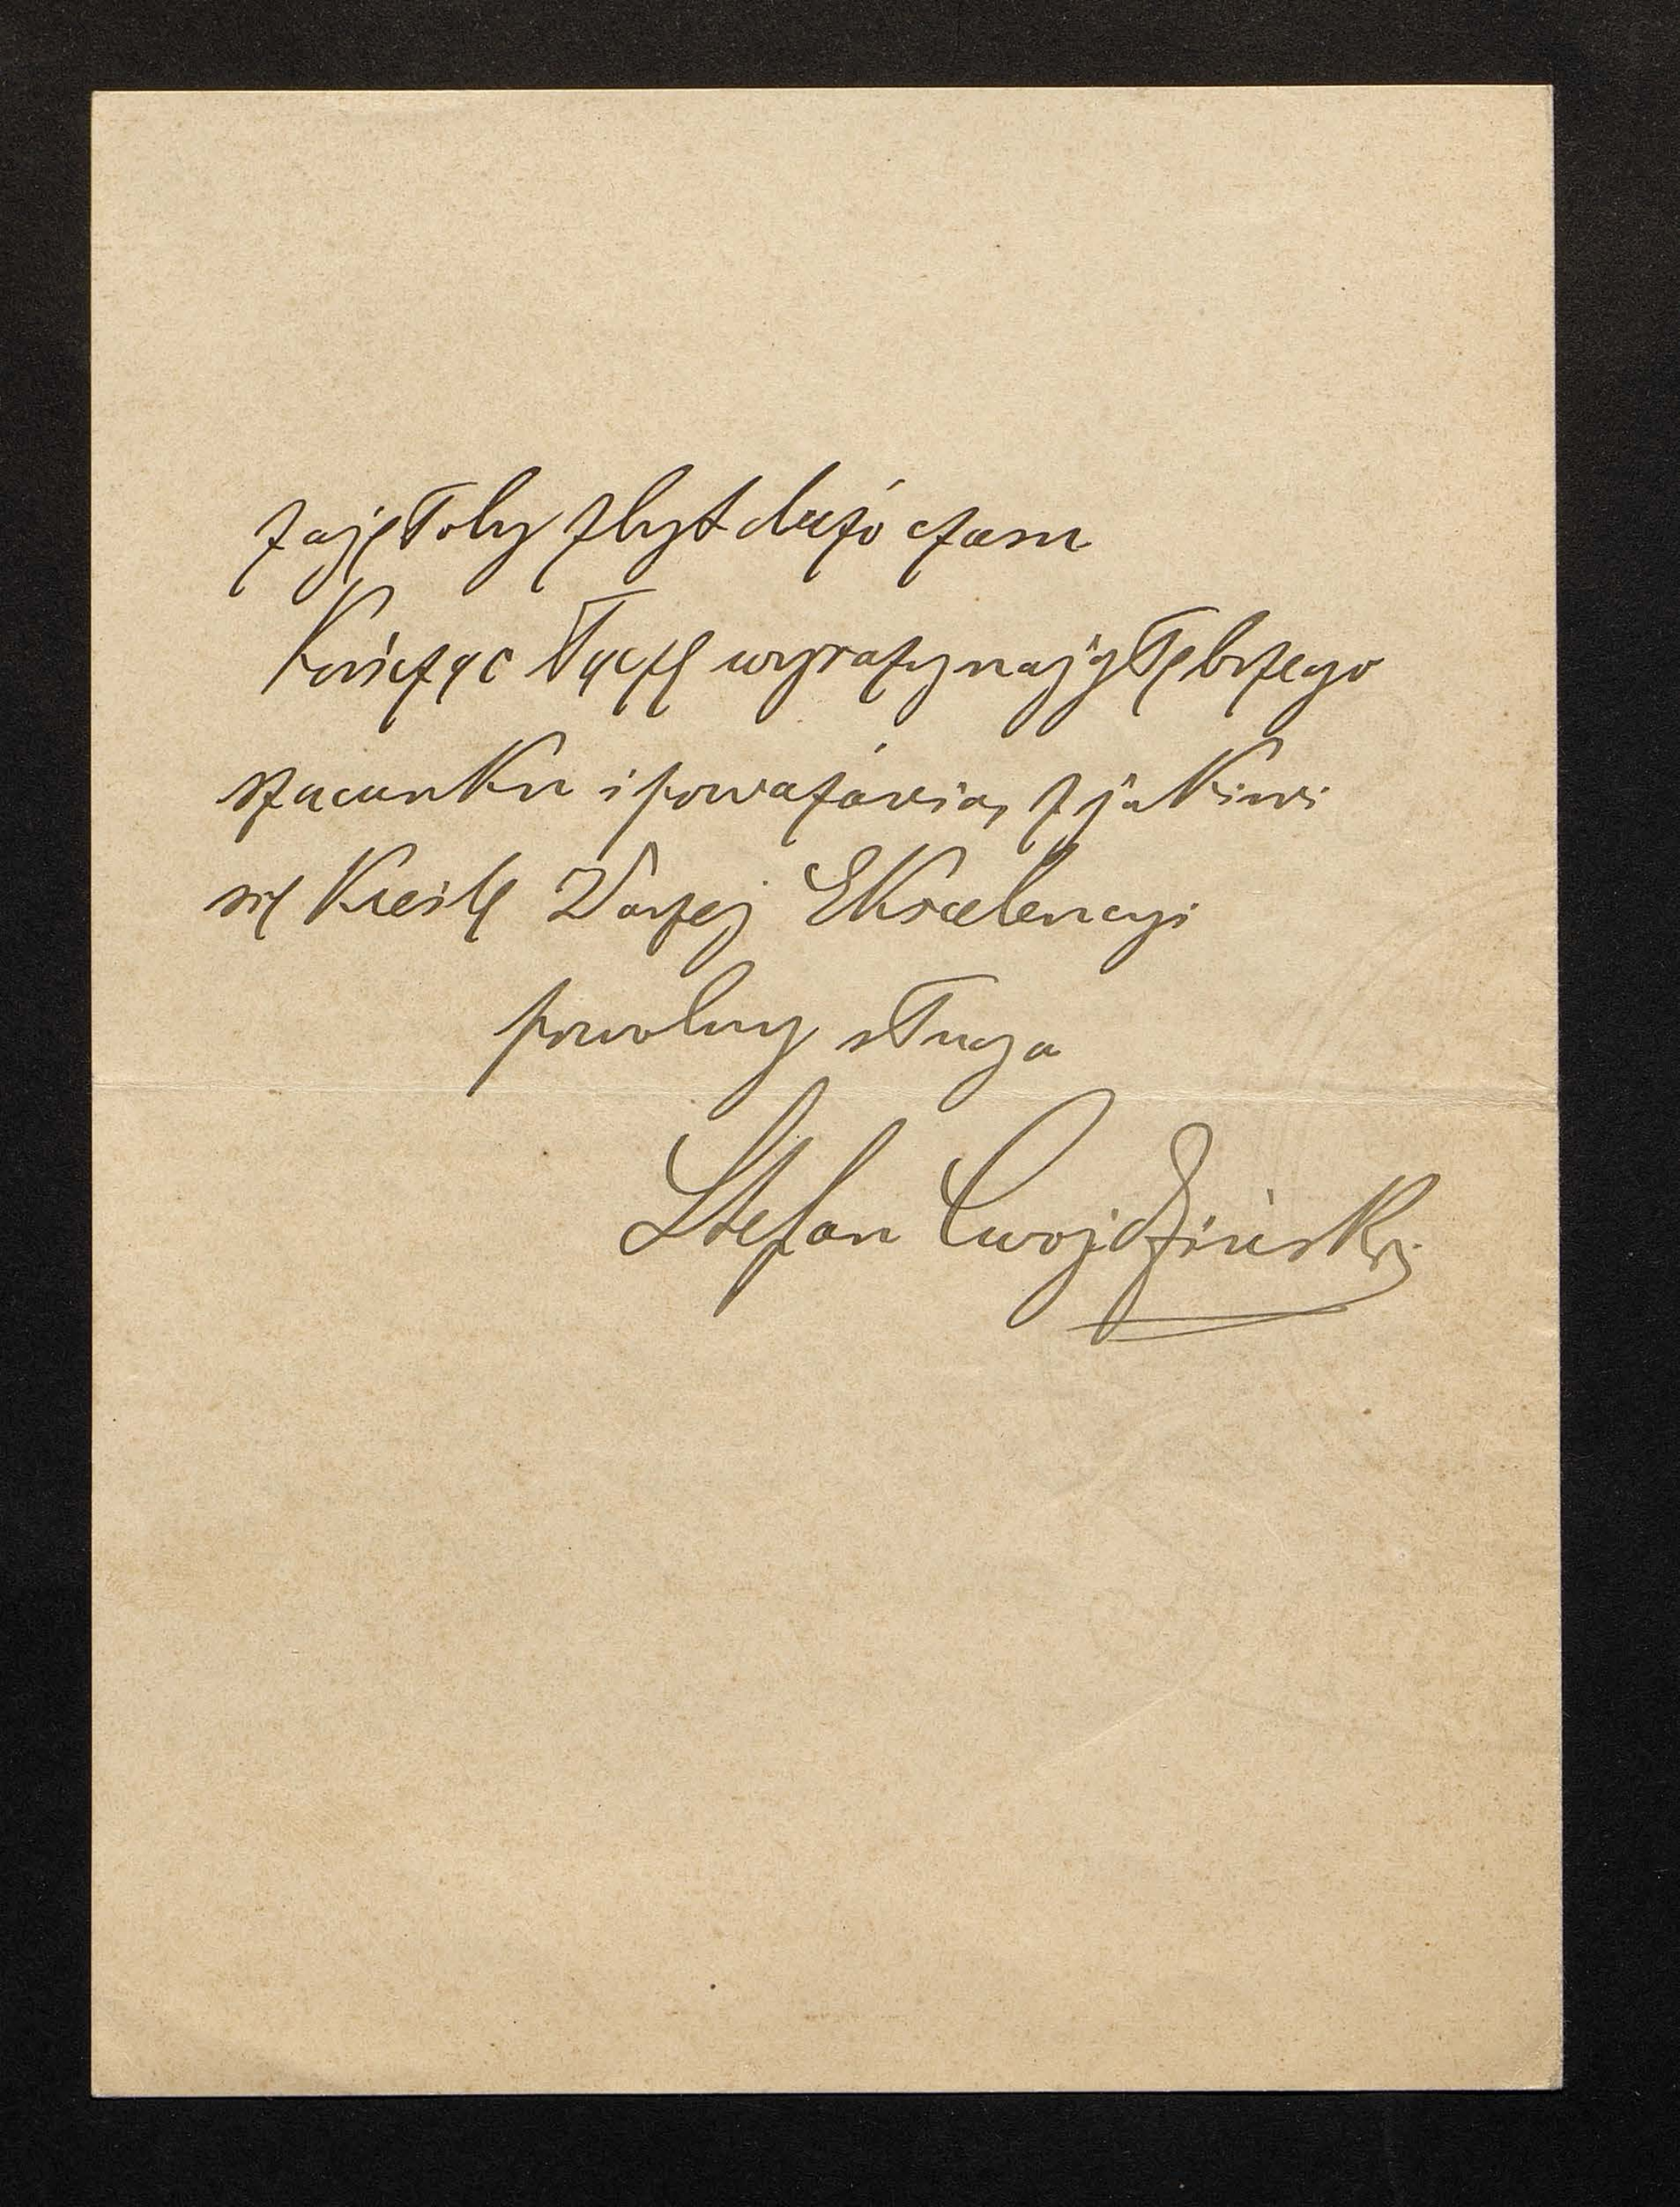 zajęłoby zbyt dużo czasu
Kończąc łączę wyrazy najgłębszego
szacunku i poważania, z jakimi
się kreślę Waszej Ekscelencyi
powolny sługa
Stefan Cwojdziński